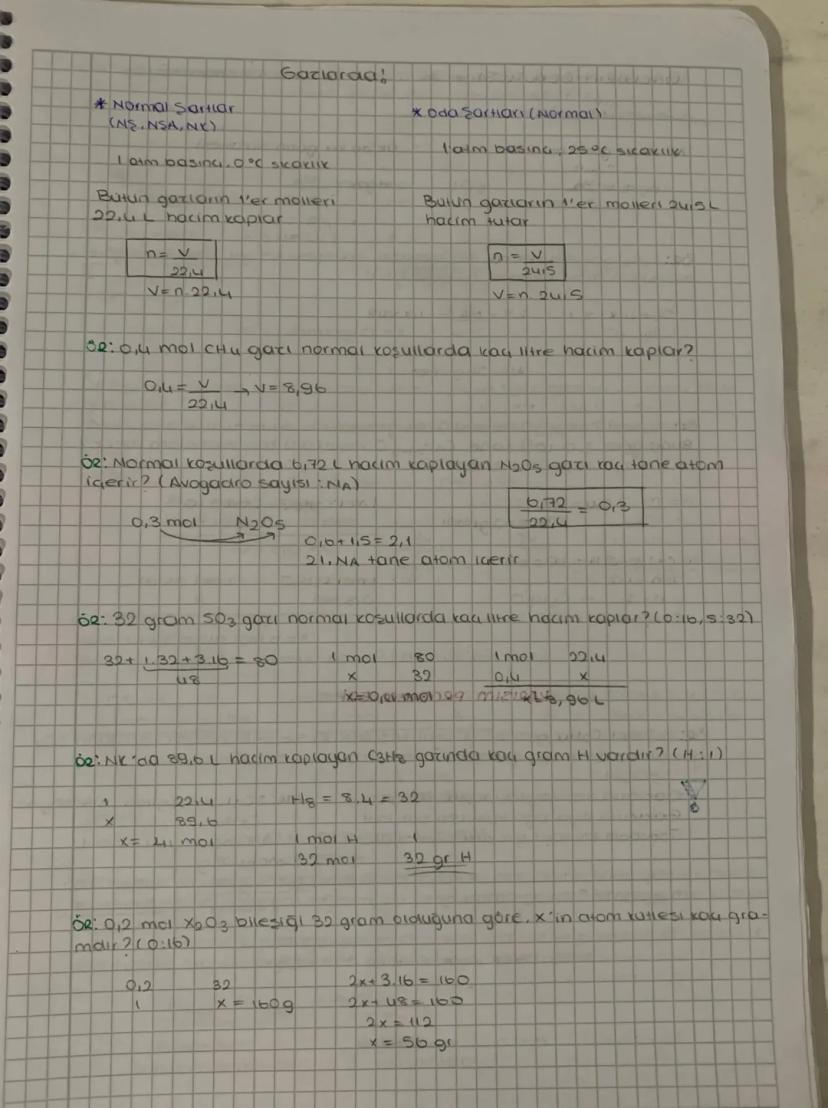 Gazlarda!
* Normal Şartlar
(NŞ, NSA, NK)
1 atm basınç, 0°C sıcaklık
Bütün gazların 1'er molleri
22,4 L hacim kaplar
n = V / 22,4
V = n.22,4
* Oda Şartları (Normal)
1 atm basınç, 25°C sıcaklık
Bütün gazların 1'er molleri 24,5 L
hacim tutar
n = V / 24,5
V = n.24,5
ÖR: 0,4 mol CH4 gazı normal koşullarda kaç litre hacim kaplar?
0,4 = V / 22,4 → V = 8,96
ÖR: Normal koşullarda 6,72 L hacim kaplayan N2O5 gazı kaç tane atom
içerir? (Avogadro sayısı: NA)
6,72 / 22,4 = 0,3
0,3 mol N2O5
0,6+1,5 = 2,1
21.NA tane atom içerir
ÖR: 32 gram SO3 gazı normal koşullarda kaç litre hacim kaplar? (O:16, S:32)
32+ 1.32+3.16 = 80
48
1 mol 80
x 32
x = 0,4 mol
1 mol 22,4
0,4 x
x = 8,96 L
ÖR: NK'da 89,6 L hacim kaplayan C3H8 gazında kaç gram H vardır? (H:1)
1 22,4
x 89,6
x = 4 mol
H8 = 8.4 = 32
1 mol H 1
32 mol 32 gr H
ÖR: 0,2 mol X2O3 bileşiği 32 gram olduğuna göre, X'in atom kütlesi kaç gra-
mdır? (O:16)
0,2 32
1 x = 160 g
2x+3.16 = 160
2x+48 = 160
2x = 112
x = 56 gr